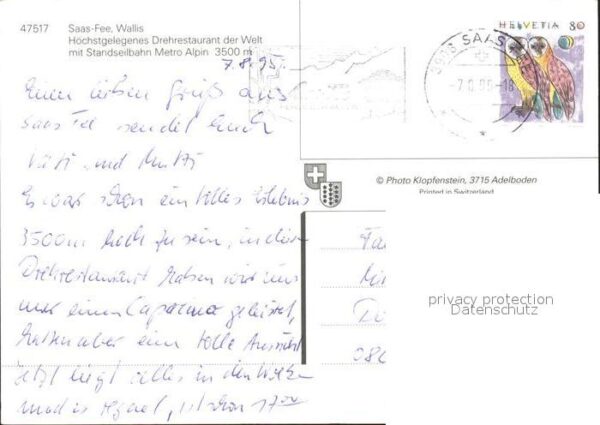 47517 Saas-Fee, Wallis
Höchstgelegenes Drehrestaurant der Welt
mit Standseilbahn Metro Alpin 3500 m
7.8.95.
Einen lieben Gruß aus
Saas Fee sendet Euch
und
Es war schon ein tolles Erlebnis
3500m hoch zu sein, in dem
Drehrestaurant haben wir uns
nur einen geleistet,
hatten aber eine tolle Aussicht
Jetzt liegt alles in den Wolken
und es regnet, ist schon 17 00
HELVETIA 80
3906 SAAS
© Photo Klopfenstein, 3715 Adelboden
Printed in Switzerland
Fa
privacy protection
Datenschutz